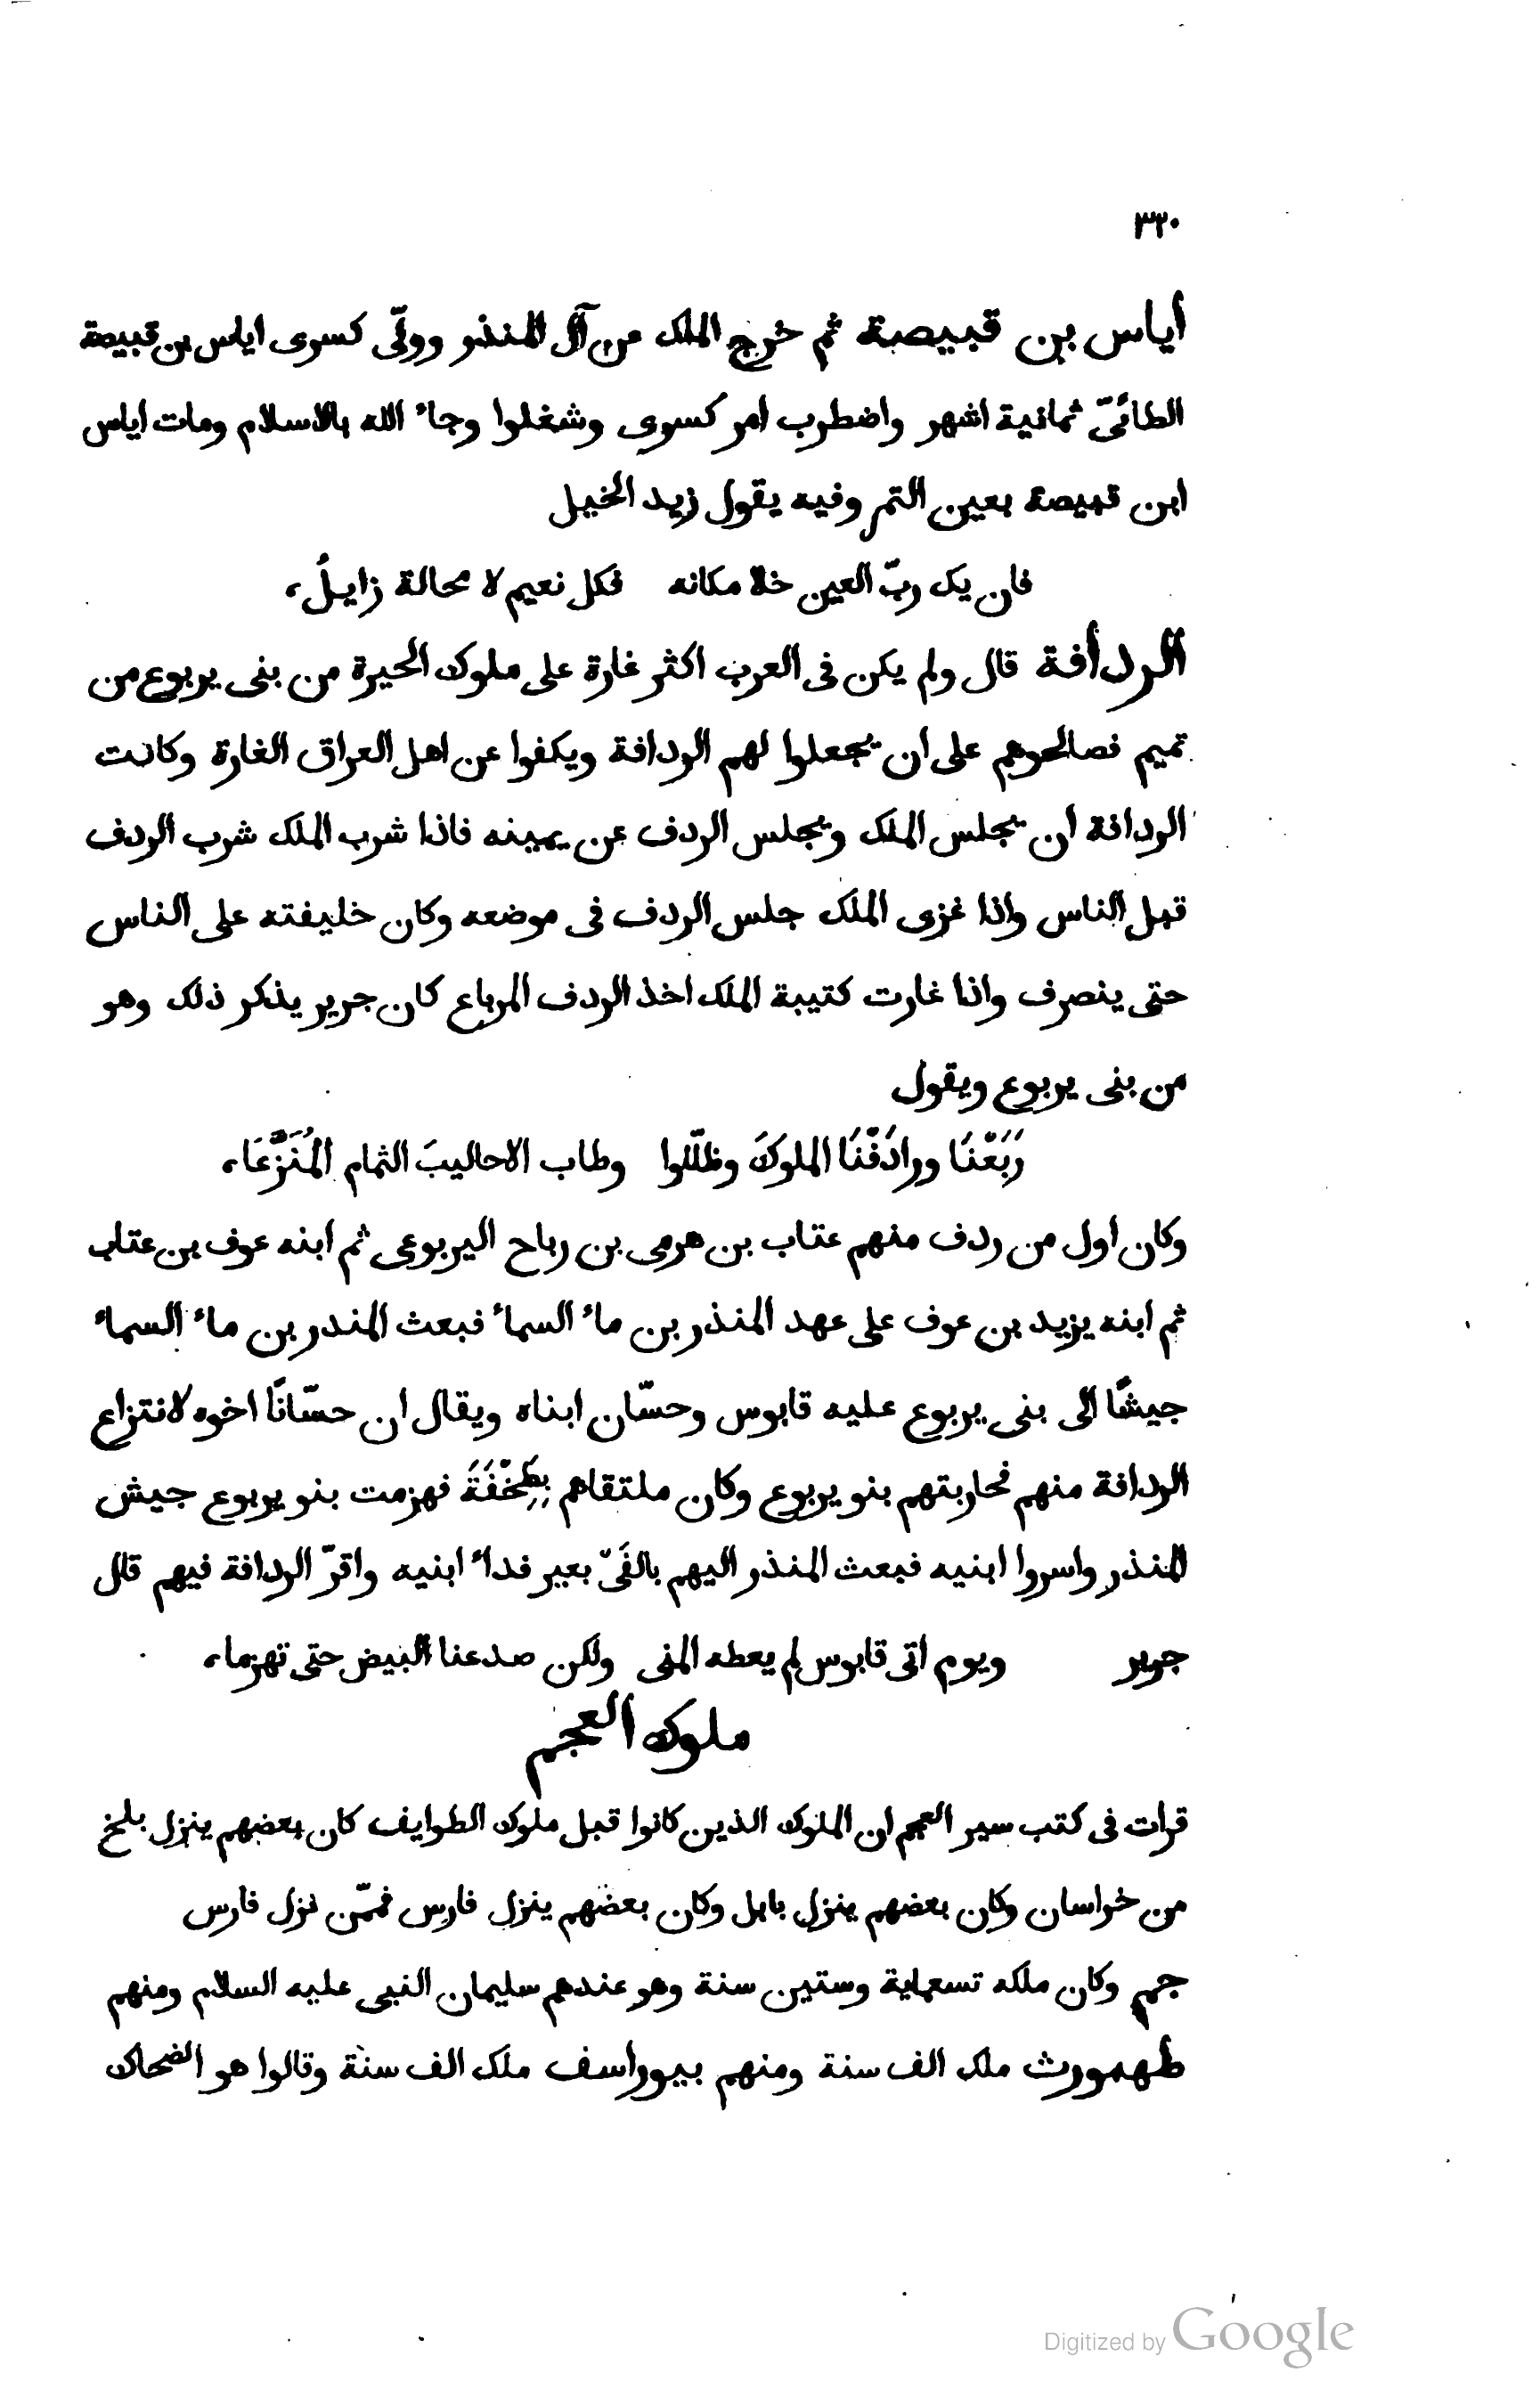 ٣٢٠
اياس بن قبيصة ثم خرج الملك عن آل المنذر وولّى كسرى اياس بن قبيصة
الطائىّ ثمانية اشهر واضطرب امر كسرى وشغلوا وجاء الله بالاسلام ومات اياس
ابن قبيصة بعين التمر وفيه يقول زيد الخيل
فان يك ربّ العين خلا مكانه فكل نعيم لا محالة زايلُ،
الردافة قال ولم يكن فى العرب اكثر غارة على ملوك الحيرة من بنى يربوع من
تميم فصالحوهم على ان يجعلوا لهم الردافة ويكفوا عن اهل العراق الغارة وكانت
الردافة ان يجلس الملك ويجلس الردف عن يمينه فاذا شرب الملك شرب الردف
قبل الناس واذا غزى الملك جلس الردف فى موضعه وكان خليفته على الناس
حتى ينصرف واذا غارت كتيبة الملك اخذ الردف المرباع كان جرير يذكر ذلك وهو
من بنى يربوع ويقول
رَبَعْنَا ورادَفْنَا الملوكَ وظلّلوا وطاب الاحاليبَ الثمام المُنَزَّعَا،
وكان اول من ردف منهم عتاب بن هرمى بن رباح اليربوعى ثم ابنه عوف بن عتاب
ثم ابنه يزيد بن عوف على عهد المنذر بن ماء السماء فبعث المندر بن ماء السماء
جيشًا الى بنى يربوع عليه قابوس وحسّان ابناه ويقال ان حسّانًا اخوه لانتزاع
الردافة منهم فحاربتهم بنو يربوع وكان ملتقاهم بِطِخْفَةَ فهزمت بنو يربوع جيش
المنذر واسروا ابنيه فبعث المنذر اليهم بالفَىّ بعير فداء ابنيه واقرّ الردافة فيهم قال
جرير ويوم اتى قابوس لم يعطه المنى ولكن صدعنا البيض حتى تهزما،
ملوك العجم
قرات فى كتب سير العجم ان الملوك الذين كانوا قبل ملوك الطوايف كان بعضهم ينزل بلخ
من خراسان وكان بعضهم ينزل بابل وكان بعضهم ينزل فارس فممّن نزل فارس
جم وكان ملكه تسعماية وستين سنة وهو عندهم سليمان النبى عليه السلام ومنهم
طهمورث ملك الف سنة ومنهم بيوراسف ملك الف سنة وقالوا هو الضحاك
Digitized by Google